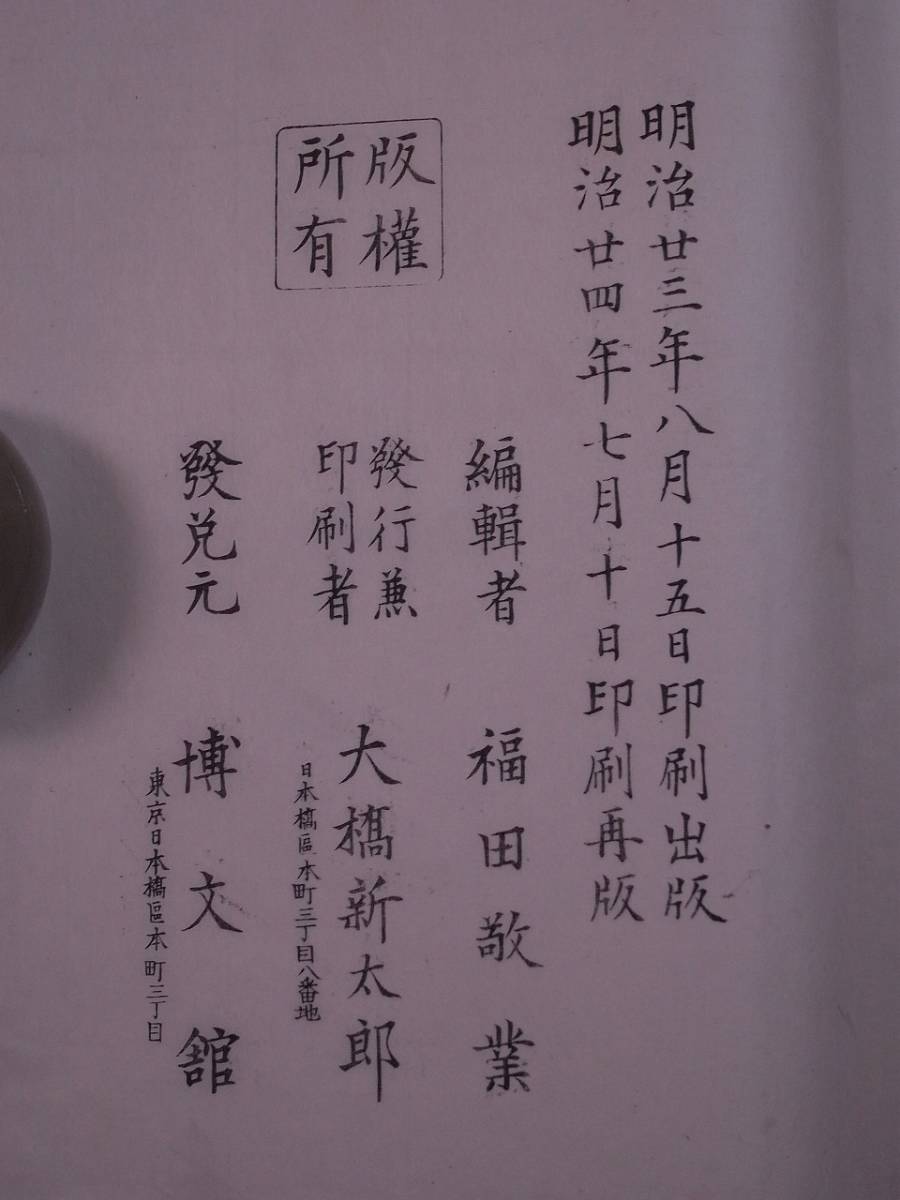 明治廿三年八月十五日印刷出版
明治廿四年七月十日印刷再版
版權
所有
編輯者　福田敬業
發行兼
印刷者
大橋新太郎
日本橋區本町三丁目八番地
發兌元　博文舘
東京日本橋區本町三丁目